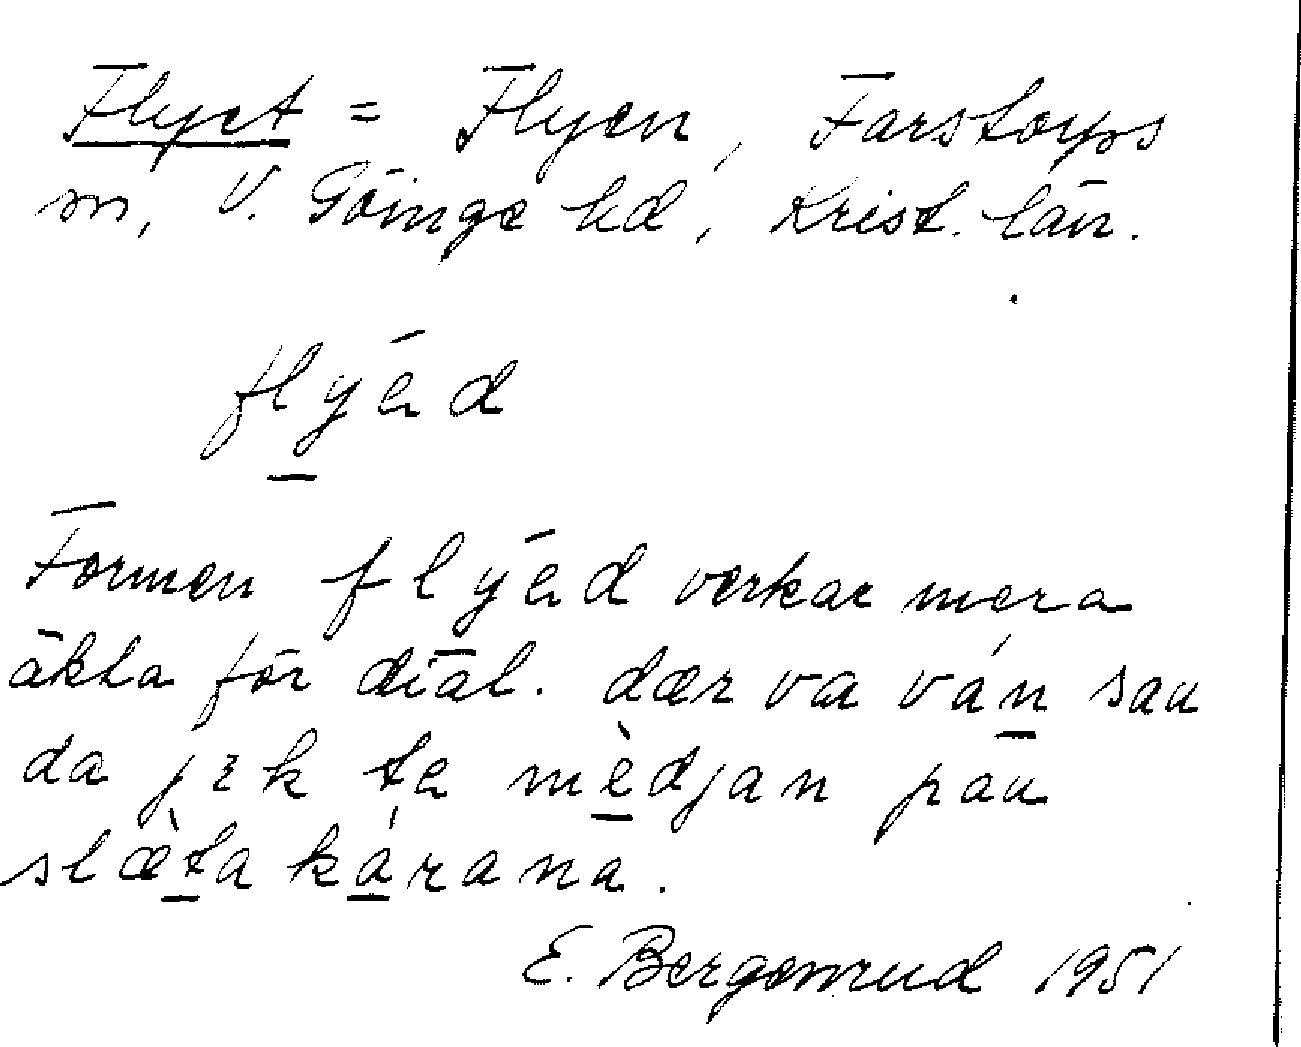 Flyet = Flyen, Farstorps
sn, V. Göinge hd, Krist. län.
flýed
Formen flýed verkar mera
äkta för dial. dær va ván sau
da jek te mèdjan pau
slæ̀ta kárana.
E. Bergenrud 1951